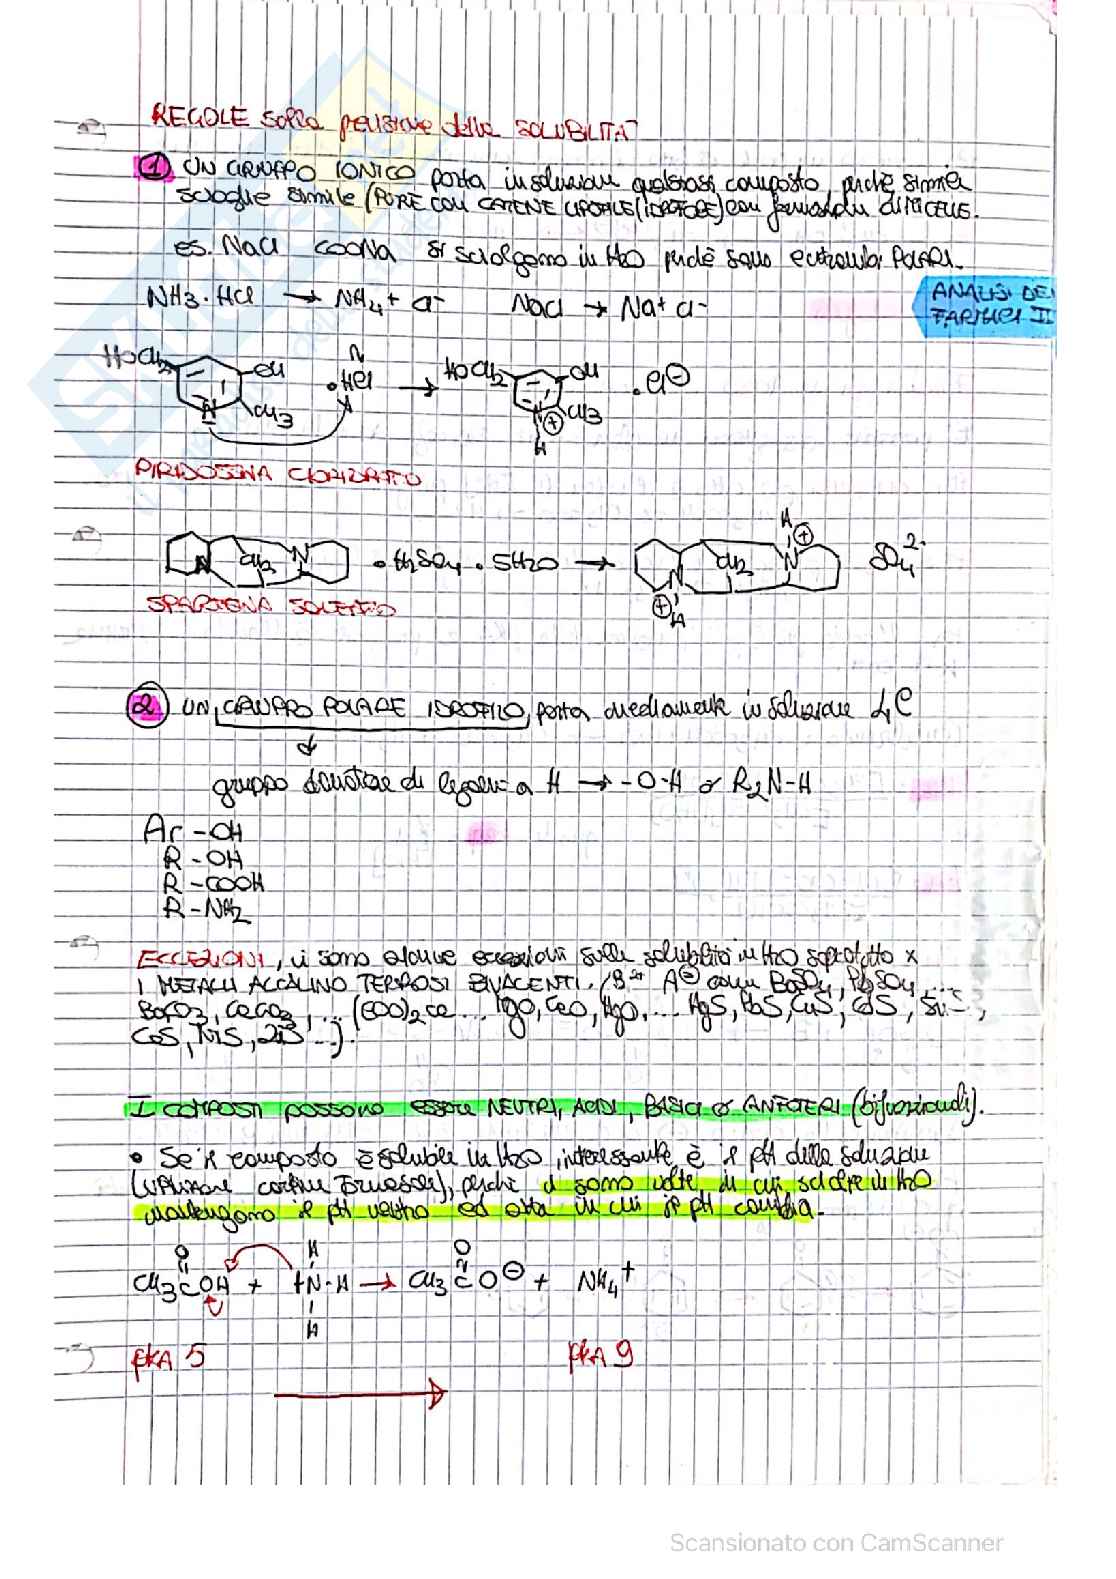 REGOLE sulla previsione della SOLUBILITA'
1 UN GRUPPO IONICO porta in soluzione qualsiasi composto, perchè simile
scioglie simile (PURE CON CATENE LIPOFILE (IDROFOBE) con formazione di MICELLE.
es. NaCl COONa si sciolgono in H2O perchè sono entrambi POLARI.
NH3·HCl → NH4+ Cl- NaCl → Na+ Cl-
ANALISI DEI
FARMACI II
HOCH2 OH N CH3 ·HCl → HOCH2 OH CH3 N ⊕ H ·Cl⊖
PIRIDOSSINA CLORIDRATO
N CH2 N · H2SO4 · 5H2O → N ⊕ H CH2 N H ⊕ SO4 2-
SPARTEINA SOLFATO
2 UN GRUPPO POLARE IDROFILO, porta mediamente in soluzione 4 C
gruppo donatore di legami a H → -O-H o R2N-H
Ar-OH
R-OH
R-COOH
R-NH2
ECCEZIONI, ci sono alcune eccezioni sulla solubilità in H2O soprattutto x
I METALLI ALCALINO TERROSI BIVALENTI. /B2+ A⊖ come BaSO4, PbSO4, ...
BaCO3, CaCO3, ... (COO)2Ca ... MgO, CaO, HgO, ... HgS, PbS, CuS, CdS,
CoS, NiS, ZnS ...).
I COMPOSTI possono essere NEUTRI, ACIDI, BASICI o ANFOTERI (bifunzionali).
• Se il composto è solubile in H2O, interessante è il pH della soluzione
(utilizzare cartine tornasole), perchè ci sono volte in cui sciolte in H2O
mantengono il pH neutro ed altre in cui il pH cambia.
O H O
CH3 C OH + H N-H → CH3 C O⊖ + NH4+
H
pKA 5 pKA 9
Scansionato con CamScanner